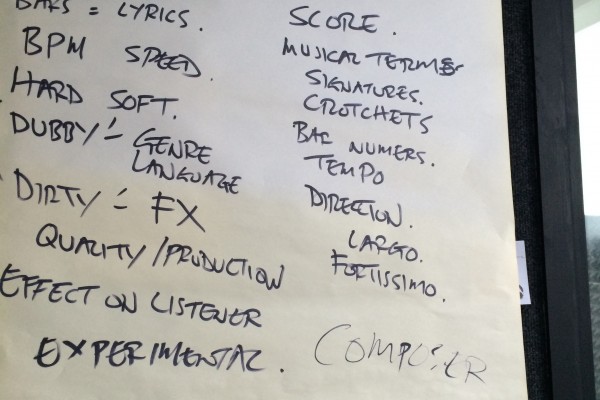 BARS = LYRICS.
BPM SPEED.
HARD SOFT.
DUBBY = GENRE
LANGUAGE
DIRTY = FX
QUALITY/PRODUCTION
EFFECT ON LISTENER
EXPERIMENTAL.
SCORE.
MUSICAL TERMS
SIGNATURES.
CROTCHETS
BAR NUMERS.
TEMPO
DIRECTION.
LARGO.
FORTISSIMO.
COMPOSER